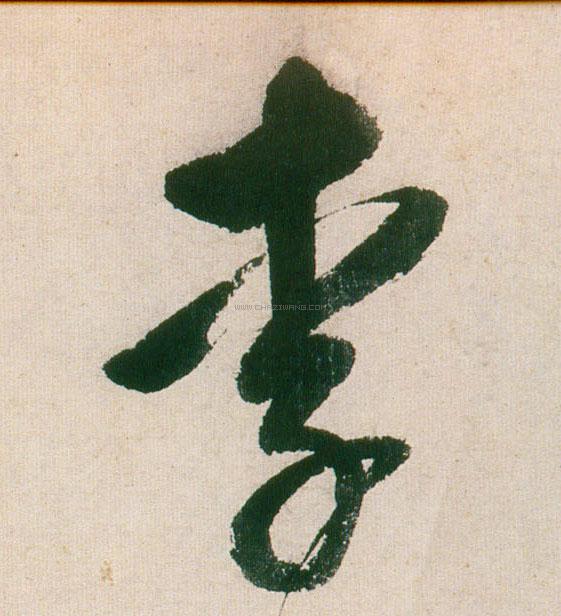 李
WWW.CHAZIWANG.COM